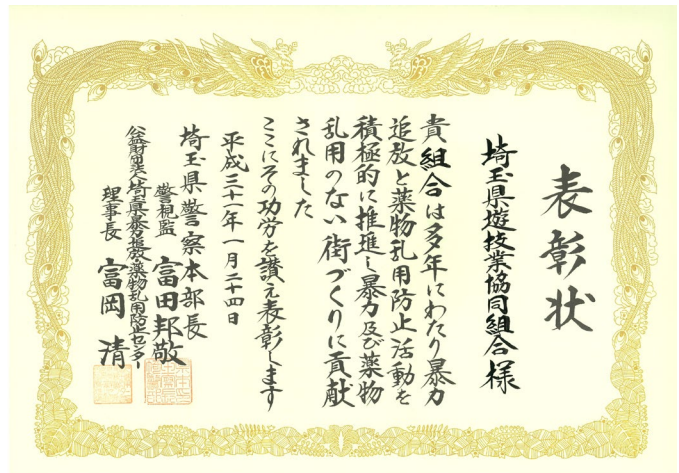 表彰状
埼玉県遊技業協同組合様
貴組合は多年にわたり暴力
追放と薬物乱用防止活動を
積極的に推進し暴力及び薬物
乱用のない街づくりに貢献
されました
ここにその功労を讃え表彰します
平成三十一年一月二十四日
埼玉県警察本部長
警視監 富田邦敬
公益財団法人埼玉県暴力追放・薬物乱用防止センター
理事長 富岡清